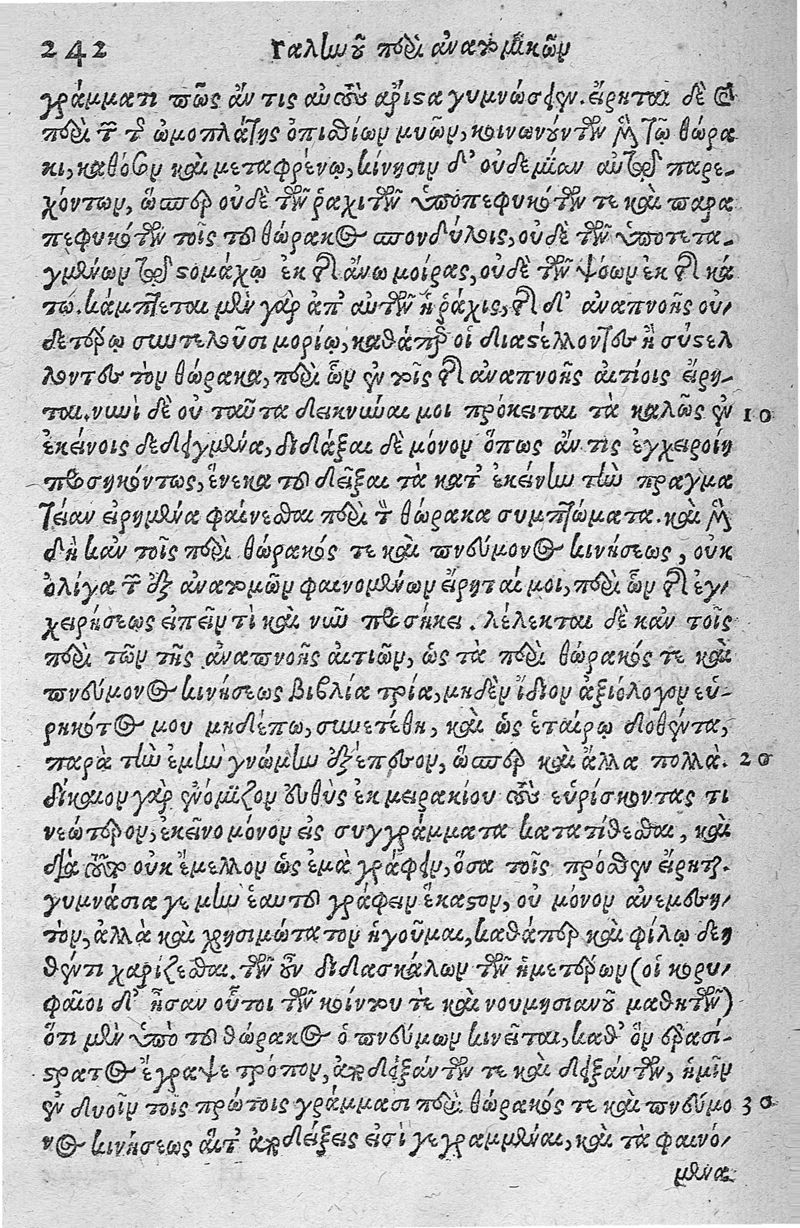 242 Γαληνοῦ περὶ ἀνατομικῶν
γράμματι πῶς ἄν τις αὐτοὺς ἄριστα γυμνώσειεν. εἴρηται δὲ καὶ
περὶ τῶν τῆς ὠμοπλάτης ὀπισθίων μυῶν, κοινωνούντων μὲν τῷ θώρα
κι, καθόσον καὶ μεταφρένῳ, κίνησιν δ' οὐδεμίαν αὐτῷ παρε-
χόντων, ὥσπερ οὐδὲ τῶν ῥαχιτῶν ὑποπεφυκότων τε καὶ παρα
πεφυκότων τοῖς τοῦ θώρακος σπονδύλοις, οὐδὲ τῶν ὑποτετα-
γμένων τῷ στομάχῳ ἐκ τῆς ἄνω μοίρας, οὐδὲ τῶν ψόων ἐκ τῆς κά
τω. κάμπτεται μὲν γὰρ ἀπ' αὐτῶν ἡ ῥάχις, τῆς δ' ἀναπνοῆς οὐ-
δετέρῳ συντελοῦσι μορίῳ, καθάπερ οἱ διαστέλλοντες ἢ συστελ
λοντες τὸν θώρακα, περὶ ὧν ἐν τοῖς τῆς ἀναπνοῆς αἰτίοις εἴρη-
ται. νυνὶ δὲ οὐ ταῦτα δεικνύναι μοι πρόκειται τὰ καλῶς ἐν 10
ἐκείνοις δεδειγμένα, διδάξαι δὲ μόνον ὅπως ἄν τις ἐγχειροίη
προσηκόντως, ἕνεκα τοῦ δεῖξαι τὰ κατ' ἐκείνην τὴν πραγμα
τείαν εἰρημένα φαίνεσθαι περὶ τὸν θώρακα συμπτώματα. καὶ μὲν
δὴ κἀν τοῖς περὶ θώρακός τε καὶ πνεύμονος κινήσεως, οὐκ
ὀλίγα τῶν ἐξ ἀνατομῶν φαινομένων εἴρηταί μοι, περὶ ὧν τῆς ἐγ-
χειρήσεως εἰπεῖν τὶ καὶ νῦν προσήκει. λέλεκται δὲ κἀν τοῖς
περὶ τῶν τῆς ἀναπνοῆς αἰτιῶν, ὡς τὰ περὶ θώρακός τε καὶ
πνεύμονος κινήσεως βιβλία τρία, μηδὲν ἴδιον ἀξιόλογον εὑ-
ρηκότος μου μηδέπω, συνετέθη, καὶ ὡς ἑταίρῳ δοθέντα,
παρὰ τὴν ἐμὴν γνώμην ἐξέπεσον, ὥσπερ καὶ ἄλλα πολλὰ. 20
δίκαιον γὰρ ἐνόμιζον εὐθὺς ἐκ μειρακίου τοὺς εὑρίσκοντας τι
νεώτερον, ἐκεῖνο μόνον εἰς συγγράμματα κατατίθεσθαι, καὶ
διὰ τοῦτο οὐκ ἔμελλον ὡς ἐμὰ γράφειν, ὅσα τοῖς πρόσθεν εἴρηται.
γυμνάσια γε μὴν ἑαυτοῦ γράφειν ἕκαστον, οὐ μόνον ἀνεμέση-
τον, ἀλλὰ καὶ χρησιμώτατον ἡγοῦμαι, καθάπερ καὶ φίλῳ δεη
θέντι χαρίζεσθαι. τῶν οὖν διδασκάλων τῶν ἡμετέρων (οἱ κορυ-
φαῖοι δ' ἦσαν οὗτοι τῶν κοίντου τὲ καὶ νουμησιανοῦ μαθητῶν)
ὅτι μὲν ὑπὸ τοῦ θώρακος ὁ πνεύμων κινεῖται, καθ' ὃν ἐρασί-
στρατος ἔγραψε τρόπον, ἀποδειξάντων τε καὶ δειξάντων, ἡμῖν
ἐν δυοῖν τοῖς πρώτοις γράμμασι περὶ θώρακός τε καὶ πνεύμο 30
νος κινήσεως αἵτ' ἀποδείξεις εἰσὶ γεγραμμέναι, καὶ τὰ φαινό-
μενα